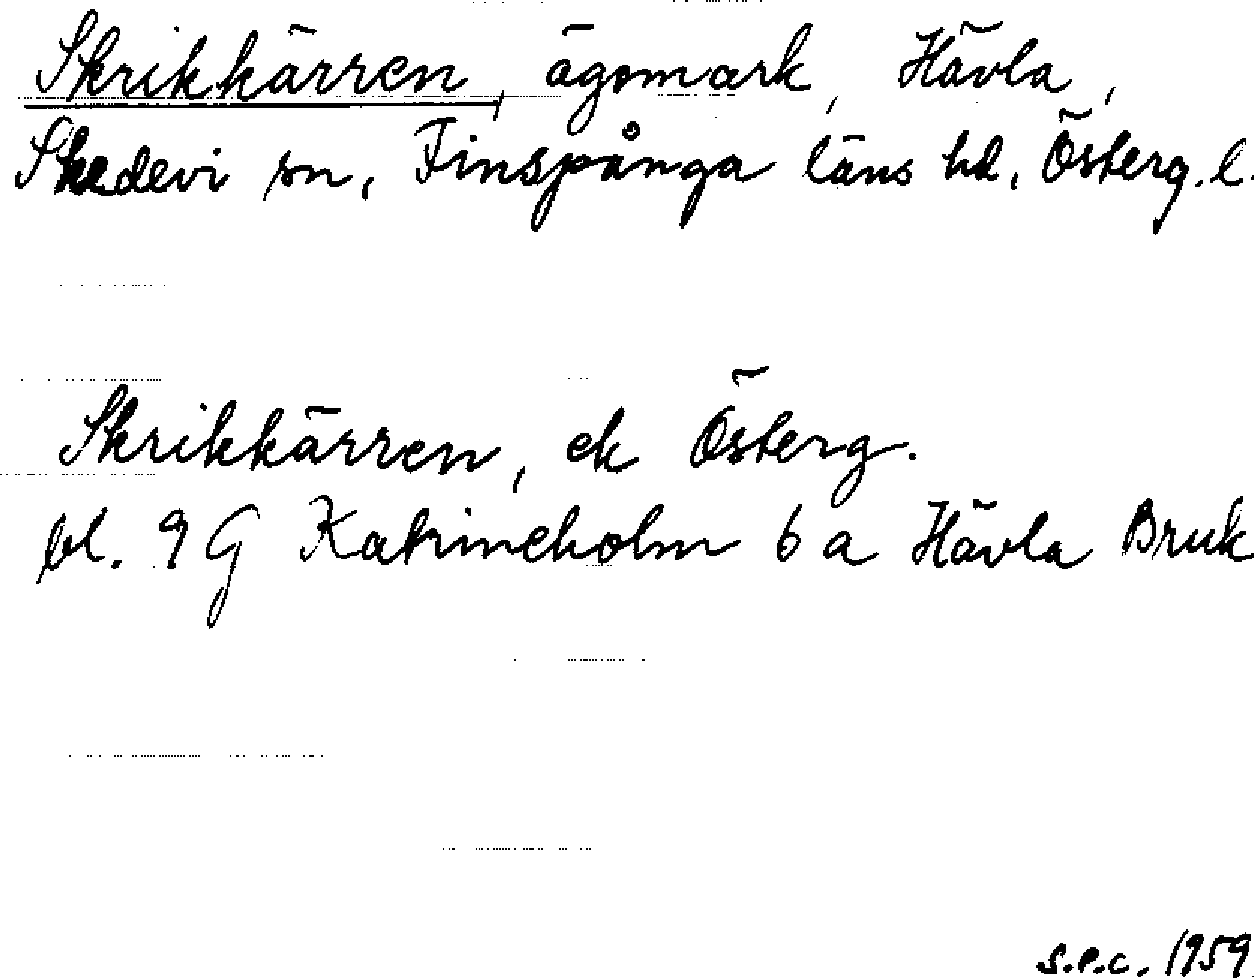 Skrikkärren, ägomark, Hävla,
Skedevi sn, Finspånga läns hd, Österg. l.
Skrikkärren, ek Österg.
bl. 9 G Katrineholm 6 a Hävla Bruk
S.P.C. 1959